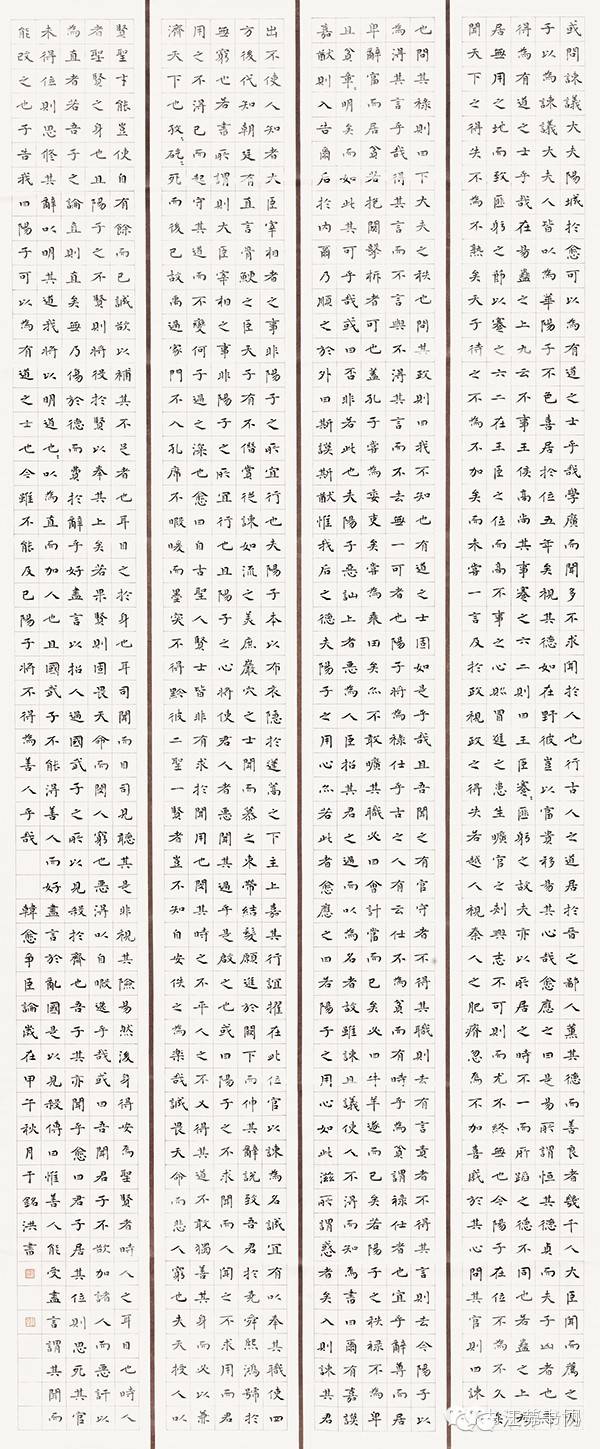 或問諫議大夫陽城於愈可以為有道之士乎哉學廣而聞多不求聞於人也行古人之道居於晉之鄙人薰其德而善良者幾千人大臣聞而薦之天
子以為諫議大夫人皆以為華陽子不色喜居於位五年矣視其德如在野彼豈以富貴移易其心哉愈應之曰是易所謂恒其德貞而夫子凶者也惡
得為有道之士乎哉在易蠱之上九云不事王侯高尚其事蹇之六二則曰王臣蹇蹇匪躬之故夫亦以所居之時不一而所蹈之德不同也若蠱之上九
居無用之地而致匪躬之節以蹇之六二在王臣之位而高不事之心則冒進之患生曠官之刺興志不可則而尤不終無也今陽子在位不為不久矣
聞天下之得失不為不熟矣天子待之不為不加矣而未嘗一言及於政視政之得失若越人之視秦人之肥瘠忽焉不加喜戚於其心問其官則曰諫議
也問其祿則曰下大夫之秩也問其政則曰我不知也有道之士固如是乎哉且吾聞之有官守者不得其職則去有言責者不得其言則去今陽子以
為得其言乎哉得其言而不言與不得其言而不去無一可者也陽子將為祿仕乎古之人有云仕不為貧而有時乎為貧謂祿仕者也宜乎辭尊而居
卑辭富而居貧若抱關擊柝者可也蓋孔子嘗為委吏矣嘗為乘田矣亦不敢曠其職必曰會計當而已矣必曰牛羊遂而已矣若陽子之秩祿不為卑
且貧章章明矣而如此其可乎哉或曰否非若此也夫陽子惡訕上者惡為人臣招其君之過而以為名者故雖諫且議使人不得而知焉書曰爾有嘉謨
嘉猷則入告爾后於內爾乃順之於外曰斯謨斯猷惟我后之德夫陽子之用心亦若此者愈應之曰若陽子之用心如此滋所謂惑者矣入則諫其君
出不使人知者大臣宰相者之事非陽子之所宜行也夫陽子本以布衣隱於蓬蒿之下主上嘉其行誼擢在此位官以諫為名誠宜有以奉其職使四
方後代知朝廷有直言骨鯁之臣天子有不僭賞從諫如流之美庶巖穴之士聞而慕之束帶結髮願進於闕下而伸其辭說致吾君於堯舜熙鴻號於
無窮也若書所謂則大臣宰相之事非陽子之所宜行也且陽子之心將使君人者惡聞其過乎是啟之也或曰陽子之不求聞而人聞之不求用而君
用之不得已而起守其道而不變何子過之深也愈曰自古聖人賢士皆非有求於聞用也閔其時之不平人之不乂得其道不敢獨善其身而必以兼
濟天下也孜孜矻矻死而後已故禹過家門不入孔席不暇暖而墨突不得黔彼二聖一賢者豈不知自安佚之為樂哉誠畏天命而悲人窮也夫天授人以
賢聖才能豈使自有餘而已誠欲以補其不足者也耳目之於身也耳司聞而目司見聽其是非視其險易然後身得安焉聖賢者時人之耳目也時人
者聖賢之身也且陽子之不賢則將役於賢以奉其上矣若果賢則固畏天命而閔人窮也惡得以自暇逸乎哉或曰吾聞君子不欲加諸人而惡訐以
為直者若吾子之論直則直矣無乃傷於德而費於辭乎好盡言以招人過國武子之所以見殺於齊也吾子其亦聞乎愈曰君子居其位則思死其官
未得位則思修其辭以明其道我將以明道也非以為直而加人也且國武子不能得善人而好盡言於亂國是以見殺傳曰惟善人能受盡言謂其聞而
能改之也子告我曰陽子可以為有道之士也今雖不能及已陽子將不得為善人乎哉 韓愈爭臣論歲在甲午秋月于銘洪書